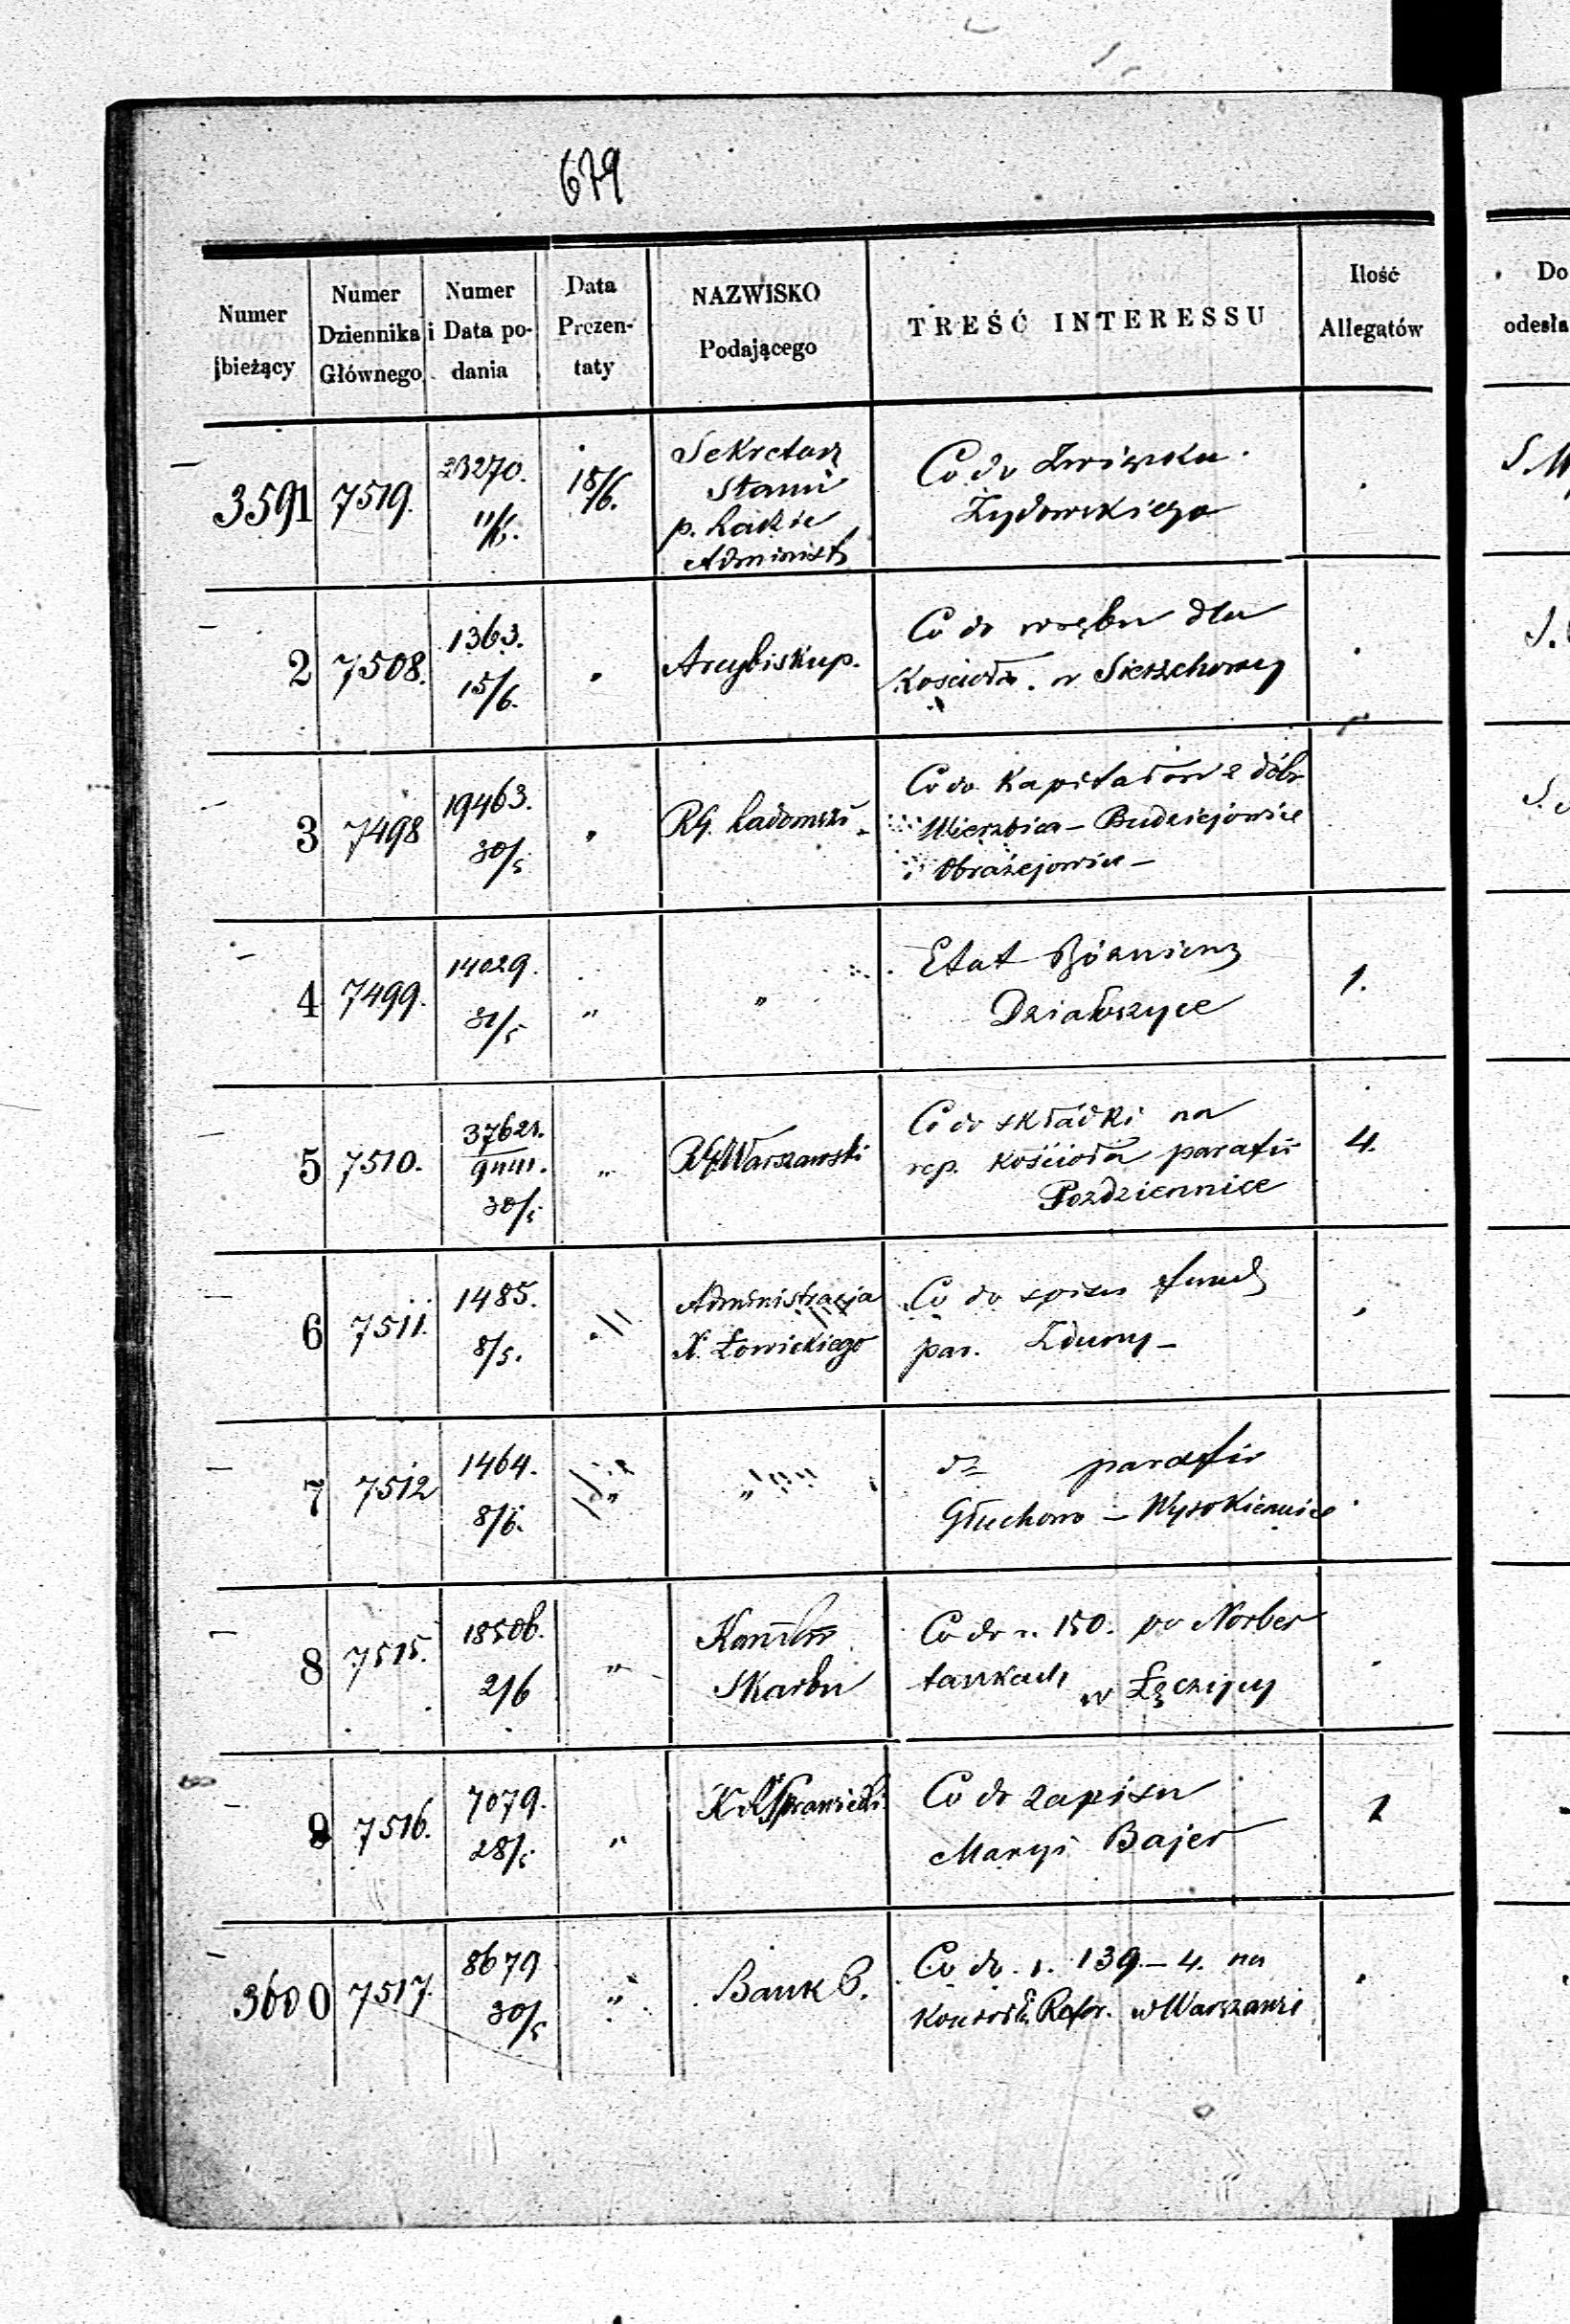 679
Numer bieżący
Numer Dziennika Głównego
Numer i Data podania
Data Prezentaty
NAZWISKO Podającego
TREŚĆ INTERESSU
Ilość Allegatów
Do
odesła
3591 7519. 23270. 11/6. 18/6. Sekretarz Stanu p. Radzie Administ Co do Związku Żydowskiego
2 7508. 1363. 15/6. Arcybiskup. Co do wrębu dla Kościoła w Sierzchowy
3 7498 19463. 30/5 RG. Radomski Co do Kapitałów z dóbr Wierzbica – Budziejowice i Obrażejowice –
4 7499. 14029. 31/5 " " Etat Bóżnicy Działoszyce 1.
5 7510. 37621. 30/5 " RG. Warszawski Co do składki na rep. Kościoła parafii Pozdzienice 4.
6 7511. 1485. 8/5. " Administracja X. Łowickiego Co do spisu fund par. Zduny –
7 7512 1464. 8/6. " " do parafii Głuchow – Wysokienice
8 7515. 18506. 2/6 " Skarbu Co do r. 150. po Norbertankach w Łęczycy
9 7516. 7079. 28/5 " Co do zapisu Maryi Bajer 1
3600 7517. 8679 30/5 " Bank P. Co do r. 139.–4. na Refor. w Warszawie